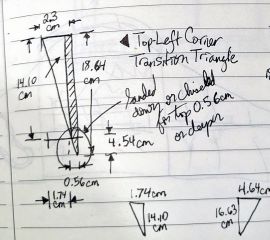 2.3
cm
◀ Top-Left Corner
Transition Triangle
18.64
cm
14.10
cm
down or chiseled
for top 0.56cm
or deeper
4.54cm
0.56cm
1.74
cm
1.74cm
4.64cm
14.10
cm
16.63
cm